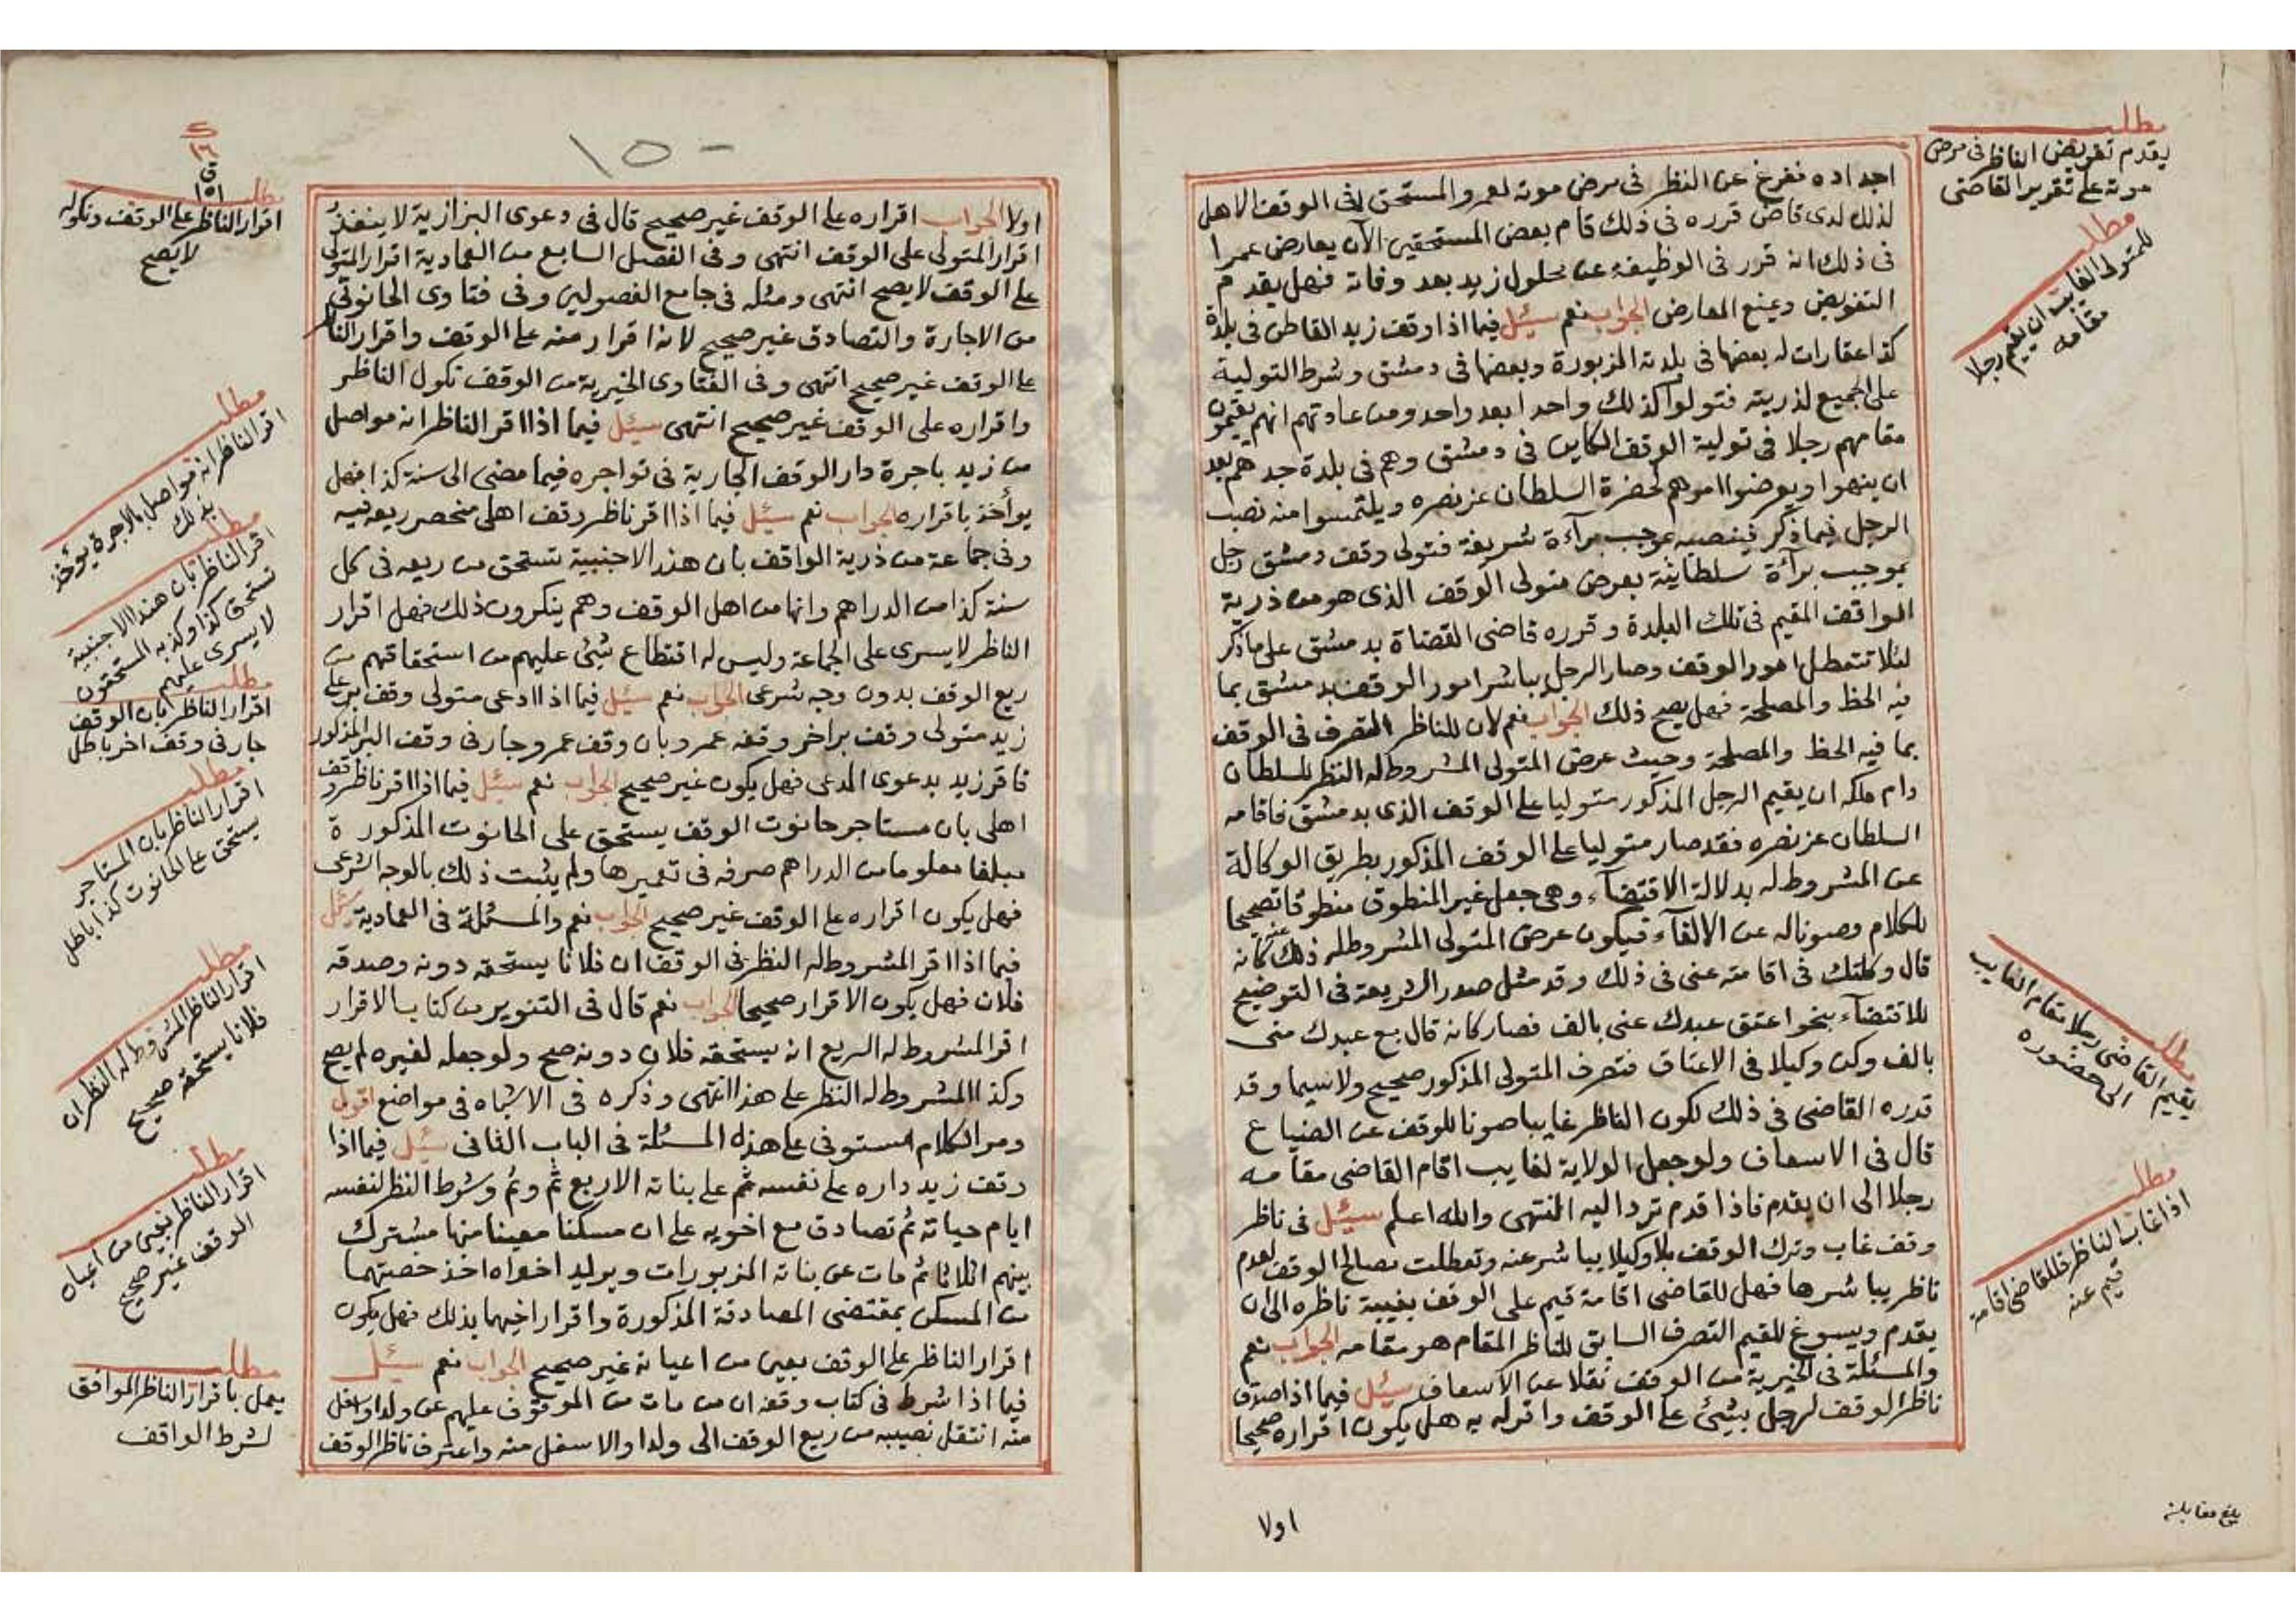 اجداده ففرغ عن النظر فى مرض موته لعمرو المستحق فى الوقف الاهل
لذلك لدى قاض قرره فى ذلك قام بعض المستحقين الآن يعارض عمرا
فى ذلك انه قرر فى الوظيفة عن محلول زيد بعد وفاته فهل يقدم
التفويض ويمنع المعارض الجواب نعم سئل فيما اذا وقف زيد القاطن فى بلدة
كذا عقارات له بعضها فى بلدته المزبورة وبعضها فى دمشق وشرط التولية
على الجميع لذريته فتولوا كذلك واحدا بعد واحد ومن عادتهم انهم يقيمون
مقامهم رجلا فى تولية الوقف الكاين فى دمشق وهم فى بلدة جدهم بعد
ان ينهوا ويعرضوا امرهم لحضرة السلطان عز نصره ويلتمسوا منه نصب
الرجل فيما ذكر فينصبه بموجب برآءة شريفة فتولى وقف دمشق رجل
بموجب برآءة سلطانية بعرض متولى الوقف الذى هو من ذرية
الواقف المقيم فى تلك البلدة وقرره قاضى القضاة بدمشق على ما ذكر
لئلا تتعطل امور الوقف وصار الرجل يباشر امور الوقف بدمشق بما
فيه الحظ والمصلحة فهل يصح ذلك الجواب نعم لان للناظر التصرف فى الوقف
بما فيه الحظ والمصلحة وحيث عرض المتولى المشروط له النظر للسلطان
دام ملكه ان يقيم الرجل المذكور متوليا على الوقف الذى بدمشق فاقامه
السلطان عز نصره فقد صار متوليا على الوقف المذكور بطريق الوكالة
عن المشروط له بدلالة الاقتضاء وهى جعل غير المنطوق منطوقا تصحيحا
للكلام وصونا له عن الالغآء فيكون عرض المتولى المشروط له ذلك عنه كانه
قال وكلتك فى اقامته عنى فى ذلك وقد مثل صدر الشريعة فى التوضيح
للاقتضآء بنحو اعتق عبدك عنى بالف فصار كانه قال بع عبدك منى
بالف وكن وكيلا فى الاعتاق فتصرف المتولى المذكور صحيح ولا سيما وقد
قدره القاضى فى ذلك لكون الناظر غايبا صونا للوقف عن الضياع
قال فى الاسعاف ولو جعل الولاية لغايب اقام القاضى مقامه
رجلا الى ان يقدم فاذا قدم ترد اليه انتهى والله اعلم سئل فى ناظر
وقف غاب وترك الوقف بلا وكيلا يباشر عنه وتعطلت مصالح الوقف لعدم
ناظر يباشرها فهل للقاضى اقامة قيم على الوقف بغيبة ناظره الى ان
يقدم ويسوغ للقيم التصرف السابق للناظر المقام هو مقامه الجواب نعم
والمسئلة فى الخيرية من الوقف نقلا عن الاسعاف سئل فيما اذا صادق
ناظر الوقف لرجل بشئ على الوقف واقر له به هل يكون اقراره صحيحا
اولا
مطلب
يقدم تفويض الناظر فى مرض
موته على تقرير القاضى
مطلب
للمتولى الغايب ان يقيم رجلا
مقامه
مطلب
يقيم القاضى رجلا مقام الغايب
الى حضوره
مطلب
اذا غاب الناظر فللقاضى اقامة
قيم عنه
بلغ مقابلة
١٥٠
اولا الجواب اقراره على الوقف غير صحيح قال فى دعوى البزازية لا ينفذ
اقرار المتولى على الوقف انتهى وفى الفصل السابع من العمادية اقرار المتولى
على الوقف لا يصح انتهى ومثله فى جامع الفصولين وفى فتاوى الحانوتى
من الاجارة والتصادق غير صحيح لانه اقرار منه على الوقف واقرار الناظر
على الوقف غير صحيح انتهى وفى الفتاوى الخيرية من الوقف نكول الناظر
واقراره على الوقف غير صحيح انتهى سئل فيما اذا اقر الناظر انه مواصل
من زيد باجرة دار الوقف الجارية فى تواجره فيما مضى الى سنة كذا فهل
يوأخذ باقراره الجواب نعم سئل فيما اذا اقر ناظر وقف اهلى منحصر ريعه فيه
وفى جماعة من ذرية الواقف بان هند الاجنبية تستحق من ريعه فى كل
سنة كذا من الدراهم وانها من اهل الوقف وهم ينكرون ذلك فهل اقرار
الناظر لا يسرى على الجماعة وليس له اقتطاع شئ عليهم من استحقاقهم من
ريع الوقف بدون وجه شرعى الجواب نعم سئل فيما اذا ادعى متولى وقف بر على
زيد متولى وقف بر اخر وقفه عمرو بان وقف عمرو جار فى وقف البر المذكور
فاقر زيد بدعوى المدعى فهل يكون غير صحيح الجواب نعم سئل فيما اذا اقر ناظر وقف
اهلى بان مستاجر حانوت الوقف يستحق على الحانوت المذكورة
مبلغا معلوما من الدراهم صرفه فى تعميرها ولم يثبت ذلك بالوجه الشرعى
فهل يكون اقراره على الوقف غير صحيح الجواب نعم والمسئلة فى العمادية سئل
فيما اذا اقر المشروط له النظر فى الوقف ان فلانا يستحقه دونه وصدقه
فلان فهل يكون الاقرار صحيحا الجواب نعم قال فى التنوير من كتاب الاقرار
اقر المشروط له الريع انه يستحقه فلان دونه صح ولو جعله لغيره لم يصح
وكذا المشروط له النظر على هذا انتهى وذكره فى الاشباه فى مواضع اقول
ومر الكلام مستوفى على هذه المسئلة فى الباب الثانى سئل فيما اذا
وقف زيد داره على نفسه ثم على بناته الاربع ثم وثم وشرط النظر لنفسه
ايام حياته ثم تصادق مع اخويه على ان مسكنا معينا منها مشترك
بينهم اثلاثا ثم مات عن بناته المزبورات ويريد اخواه اخذ حصتهما
من المسكن بمقتضى المصادقة المذكورة واقرار اخيهما بذلك فهل يكون
اقرار الناظر على الوقف بعين من اعيانه غير صحيح الجواب نعم سئل
فيما اذا شرط فى كتاب وقفه ان من مات من الموقوف عليهم عن ولد او اسفل
منه انتقل نصيبه من ريع الوقف الى ولد او الاسفل منه واعترف ناظر الوقف
مطلب
اقرار الناظر على الوقف ونكوله
لا يصح
مطلب
اقر الناظر انه مواصل بالاجرة يؤخذ
بذلك
مطلب
اقر الناظر بان هند الاجنبية
تستحق كذا وكذبه المستحقون
لا يسرى عليهم
مطلب
اقرار الناظر بان الوقف
جار فى وقف اخر باطل
مطلب
اقرار الناظر بان المستاجر
يستحق على الحانوت كذا باطل
مطلب
اقرار الناظر المشروط له النظر ان
فلانا يستحقه صحيح
مطلب
اقرار الناظر بعين من اعيان
الوقف غير صحيح
مطلب
يعمل باقرار الناظر الموافق
لشرط الواقف